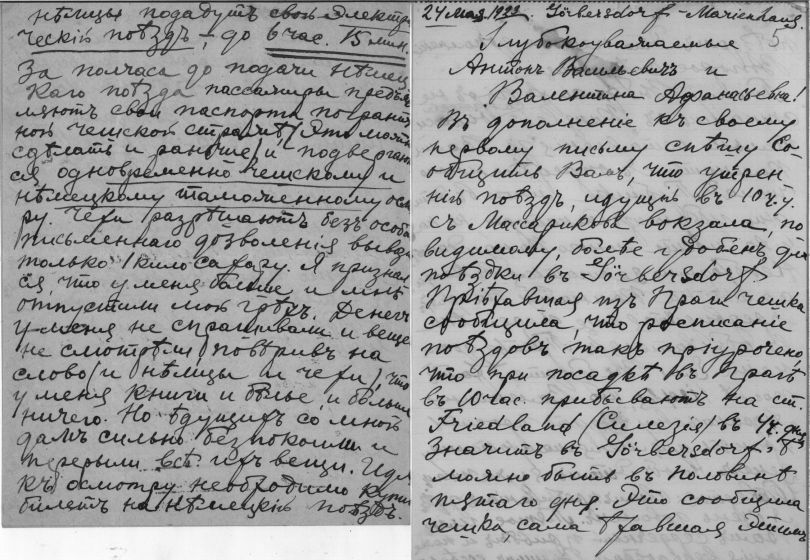 нѣмцы подадутъ свой электри
ческій поѣздъ, до 6 час. 15 мин.
За полчаса до подачи нѣмец
каго поѣзда пассажиры предъяв
ляютъ свои паспорта погранич
ной чешской стражѣ (это можно
сдѣлать и раньше) и подвергают
ся одновременно чешскому и
нѣмецкому таможенному осмо
ру. Чехи разрѣшаютъ безъ особ
письменнаго дозволенія вывоз
только 1 кило сахару. Я признал
ся, что у меня больше и мнѣ
отпустили мой грѣхъ. Денегъ
у меня не спрашивали и вещей
не смотрѣли, повѣривъ на
слово (и нѣмцы и чехи), что
у меня книги и бѣлье, и больше
ничего. Но ѣдущихъ со мной
дамъ сильно безпокоили и
перерыли всѣ ихъ вещи.
къ осмотру необходимо купи
билетъ на нѣмецкій поѣздъ.
24 мая Görbersdorf - Marienhaus.
5
Глубокоуважаемые
Антонъ Васильевичъ и
Валентина Афанасьевна!
Въ дополненіе къ своему
первому письму спѣшу со-
общить Вамъ, что утрен
ній поѣздъ, идущій въ 10 ч. у.
съ Массарикова вокзала, по
видимому, болѣе удобенъ для
поѣздки въ Görbersdorf.
Пріѣхавшая изъ Праги чешка
сообщила, что росписаніе
поѣздовъ такъ пріурочено,
что при посадкѣ въ Прагѣ
въ 10 час. прибываютъ на ст.
Friedland (Силезія) въ 4 ч. дня
Значитъ въ Görbersdorf'ѣ
можно быть въ половинѣ
пятаго дня. Это сообщила
чешка, сама ѣхавшая этимъ